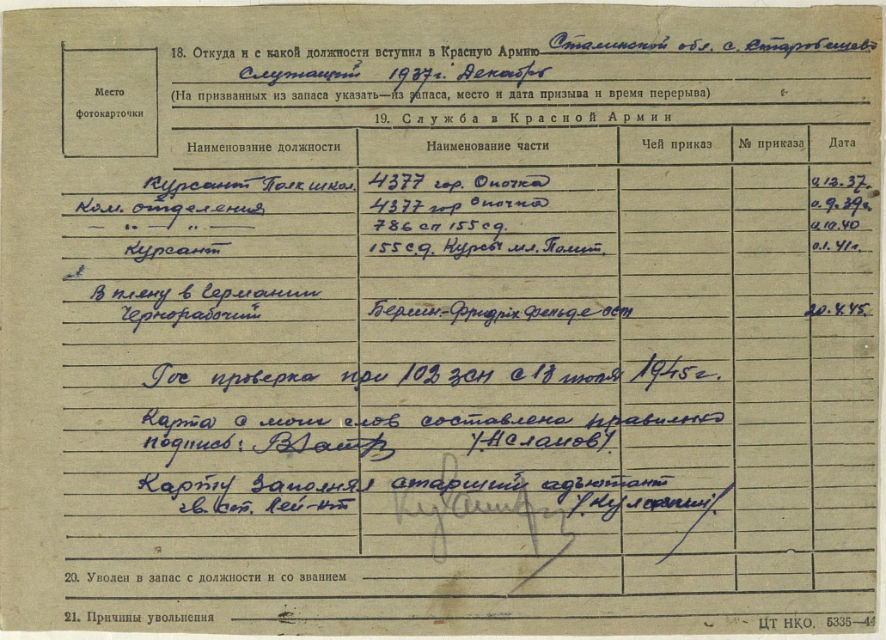 18. Откуда и с какой должности вступил в Красную Армию Сталинской обл. с. Старобешево
Служащий 1937г. Декабрь
(На призванных из запаса указать—из запаса, место и дата призыва и время перерыва)
Место
фотокарточки
19. Служба в Красной Армии
Наименование должности Наименование части Чей приказ № приказа Дата
Курсант Полк школ. 4377 гор. Опочка 0.12.37.
Ком. отделения 4377 гор Опочка 0.9.39г.
— " — " — 786 сп 155 сд. 0.10.40
Курсант 155 сд. Курсы мл. Полит. 0.1.41г.
В плену в Германии
Чернорабочий Берлин-Фридрих Фельде ост 20.4.45.
Гос проверка при 102 зсп с 18 июля 1945г.
Карта с моих слов составлена правильно
подпись: /Асланов/.
Карту Заполнял старший адъютант
гв. ст. Лей-нт
20. Уволен в запас с должности и со званием
21. Причины увольнения
ЦТ НКО. 5335—44